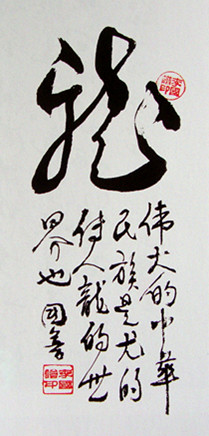 龙
伟大的中華
民族是龙的
传人龍的世
界也 国善